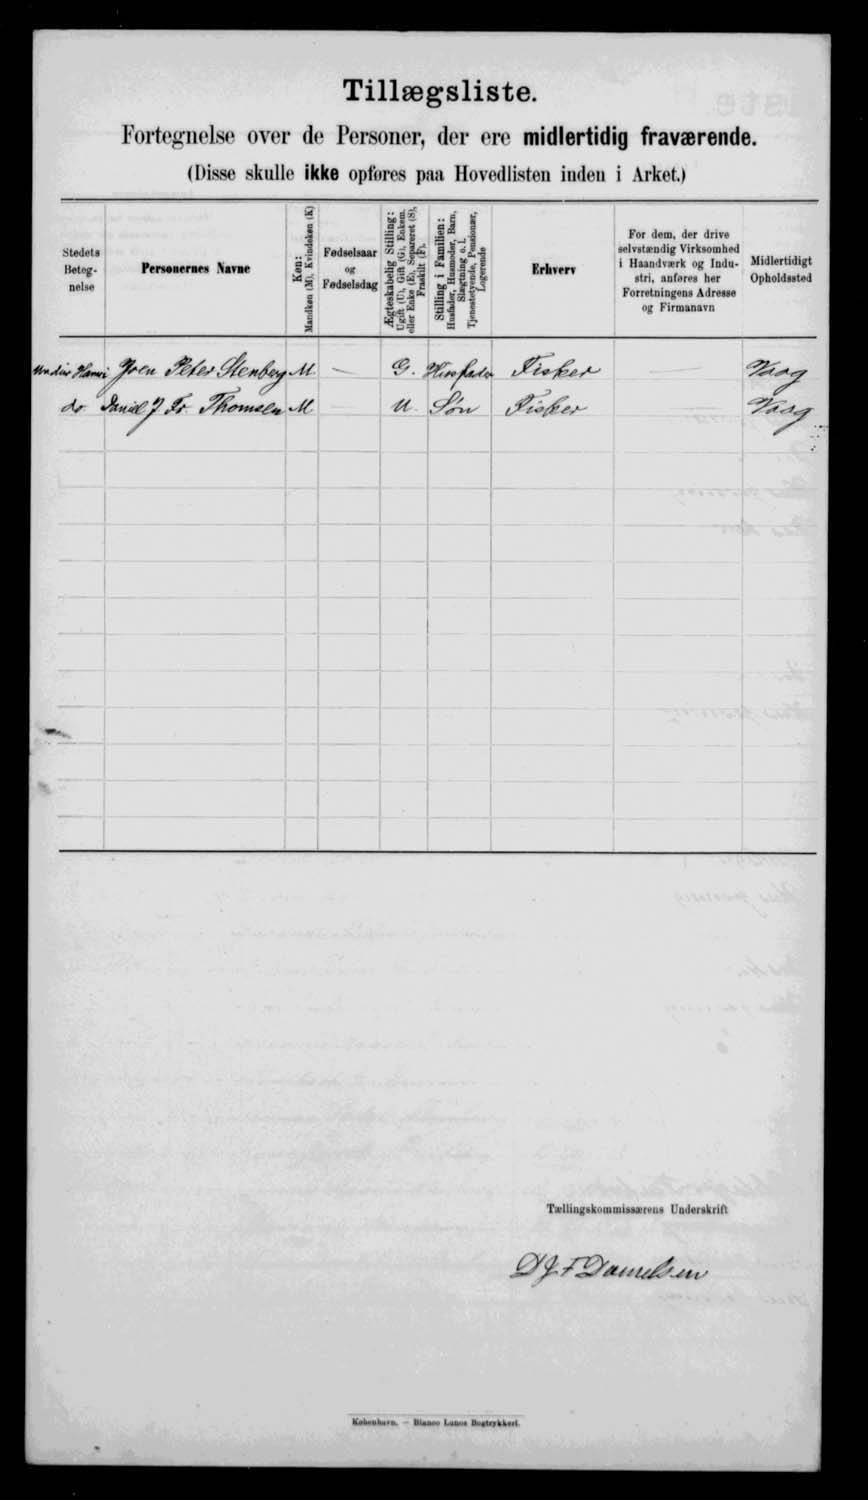 Tillægsliste.
Fortegnelse over de Personer, der ere midlertidig fraværende.
(Disse skulle ikke opføres paa Hovedlisten inden i Arket.)
Stedets Beteg-nelse
Personernes Navne
Køn: Mandkøn (M), Kvindekøn (K)
Fødselsaar og Fødselsdag
Ægteskabelig Stilling: Ugift (U), Gift (G), Enkem. eller Enke (E), Separeret (S), Fraskilt (F).
Stilling i Familien: Husfader, Husmoder, Barn, Slægtning o. l. Tjenestetyende, Pensionær, Logerende
Erhverv
For dem, der drive selvstændig Virksomhed i Haandværk og Indu-stri, anføres her Forretningens Adresse og Firmanavn
Midlertidigt Opholdssted
Peter Stenberg M — G. Husfader Fisker — Vaag
do Daniel J. Fr. Thomsen M — U. Søn Fisker Vaag
Tællingskommissærens Underskrift
D J F Danielsen
København. — Bianco Lunos Bogtrykkeri.